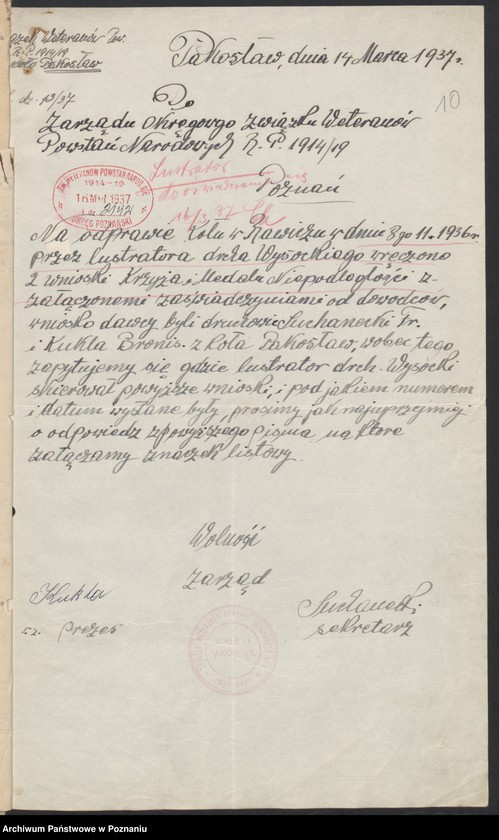 Związek Weteranów Pow.
R.P. 1914/19
Koło Pakosław
Pakosław, dnia 14 Marca 1937r.
dz. 13/37
10
Do
Zarządu Okręgowego Związku Weteranów
Powstań Narodowych R.P. 1914/19
Lustrator
Poznań
ZW. WETERANÓW POWSTAŃ NAROD. R.P.
1914-19
16 MAR 1937
L.dz. 2142
OKRĘG POZNAŃSKI
16/3 37
Na odprawie Kołu w Rawiczu w dniu 8go 11. 1936r.
przez lustratora drha Wysockiego wręczono
2 wnioski Krzyża i Medalu Niepodległości z
załączonemi zaświadczyniami od dowodców,
wniosko dawcy byli druhowie Suchanecki Fr.
i Kukla Bronis. z Koła Pakosław, wobec tego
zapytujemy się gdzie lustrator drch. Wysocki
skierował powyższe wnioski, i pod jakiem numerem
i datum wysłane były, prosimy jak najuprzejmiej
o odpowiedz z powyższego pisma, na które
załączamy znaczek listowy.
Wolność
Zarząd
Kukla
Suchanecki
cz. prezes
sekretarz
Archiwum Państwowe w Poznaniu